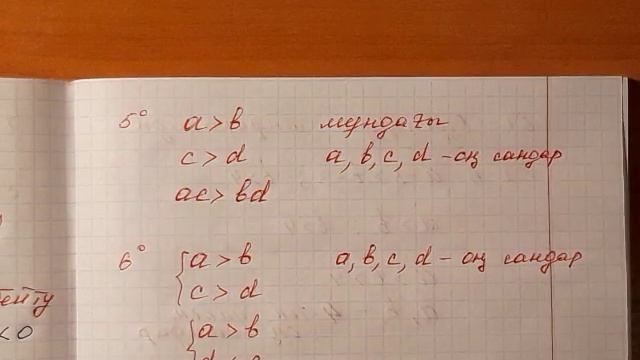 5° a > b мұндағы
c > d a, b, c, d – оң сандар
ac > bd
6° a > b a, b, c, d – оң сандар
c > d
a > b
< 0